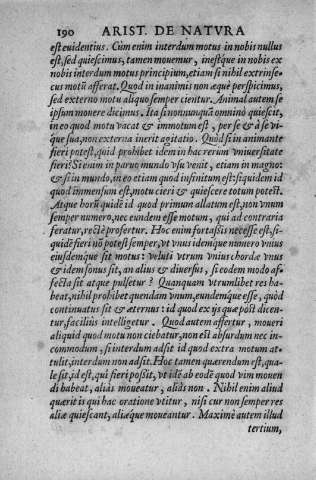 190 ARIST. DE NATVRA
est euidentius. Cùm enim interdum motus in nobis nullus
est, sed quiescimus, tamen mouemur, inestq́ue in nobis ex
nobis interdum motus principium, etiam si nihil extrinse-
cus motũ afferat. Quod in inanimis non æquè perspicimus,
sed externo motu aliquo semper cientur. Animal autem se
ipsum mouere dicimus. Ita si nonnunquã omnino quiescit,
in eo quod motu vacat & immotum est, per se & à se vi-
que sua, non externa inerit agitatio. Quòd si in animante
fieri potest, quid prohibet idem in hac rerum vniuersitate
fieri? Si enim in paruo mundo vsu venit, etiam in magno:
& si in mundo, in eo etiam quod infinitum est: siquidem id
quod immensum est, motu cieri & quiescere totum potest.
Atque horũ quidẽ id quod primum allatum est, non vnum
semper numero, nec eundem esse motum, qui ad contraria
feratur, rectè profertur. Hoc enim fortassis necesse est, si-
quidẽ fieri nõ potest semper, vt vnus idemque numero vnus
eiusdemque sit motus: veluti vtrum vnius chordæ vnus
& idem sonus sit, an alius & diuersus, si eodem modo af-
fecta sit atque pulsetur? Quanquam vtrumlibet res ha-
beat, nihil prohibet quendam vnum, eundemq́ue esse, quòd
continuatus sit & æternus: id quod ex ijs quæ pòst dicen-
tur, facilius intelligetur. Quod autem affertur, moueri
aliquid quod motu non ciebatur, non est absurdum nec in-
commodum, si interdum adsit id quod extra motum at-
tulit, interdum non adsit. Hoc tamen quærendum est, qua-
le sit, id est, quî fieri possit, vt idẽ ab eodẽ quod vim mouen
di habeat, aliàs moueatur, aliàs non. Nihil enim aliud
quærit is qui hac oratione vtitur, nisi cur non semper res
aliæ quiescant, aliæque moueantur. Maximè autem illud
tertium,